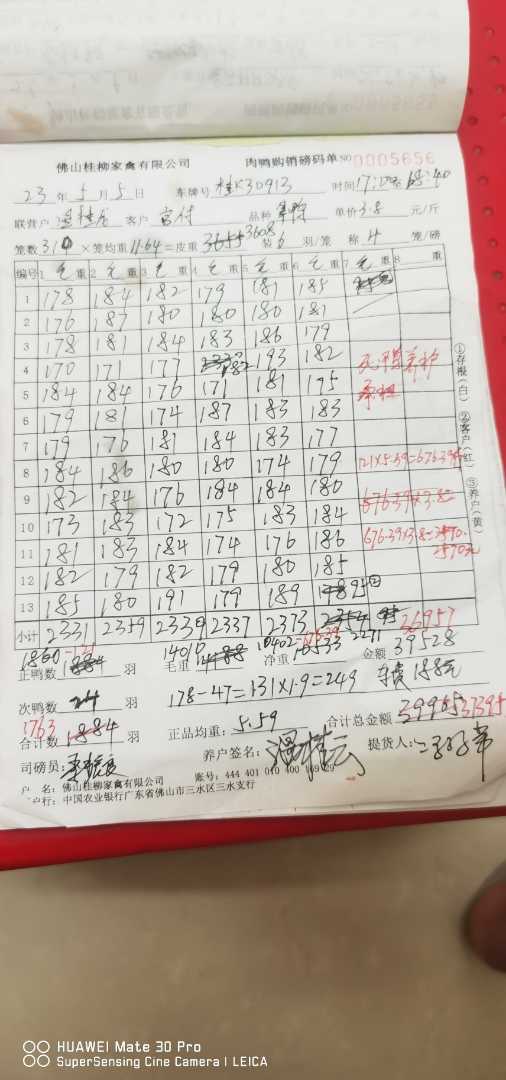 佛山桂柳家禽有限公司 肉鸭购销磅码单 NO 0005656
23 年 5 月 5 日 车牌号 桂K30913 时间 17:20
联营户 温桂云 客户 品种 单价 3.8 元/斤
笼数 310 ×笼均重 11.64 =皮重 3608 装 6 羽/笼 称 4 笼/磅
编号 1 毛 重 2 毛 重 3 毛 重 4 毛 重 5 毛 重 6 毛 重 7 毛 重 8 重
1 178 184 182 179 181 185
2 176 187 180 180 180 181
3 178 181 184 183 186 179
4 170 171 177 182 193 182
5 184 184 176 171 181 175
6 179 181 174 187 183 183
7 179 176 181 184 183 177
8 184 186 180 180 174 179 121×5.59=676.39
9 182 184 176 184 184 180 676.39×3.8=
10 173 183 172 175 183 184
11 181 183 184 174 176 186 676.39×3.8=2570.
2570元
12 182 179 182 179 180 185
13 185 180 191 179 189 95
小计 2331 2359 2339 2337 2373 95 36957
正鸭数 1860 -121 羽 毛重 14010 净重 10402 2271 金额 39528
次鸭数 24 羽 178-47=131×1.9=249
合计数 1763 1884 羽 正品均重: 5.59 合计总金额 37395
司磅员: 养户签名: 温桂云 提货人:
户 名: 佛山桂柳家禽有限公司 账号: 444 401 010 400 169 29
户行: 中国农业银行广东省佛山市三水区三水支行
①存根(白) ②客户(红) ③养户(黄)
HUAWEI Mate 30 Pro
SuperSensing Cine Camera | LEICA